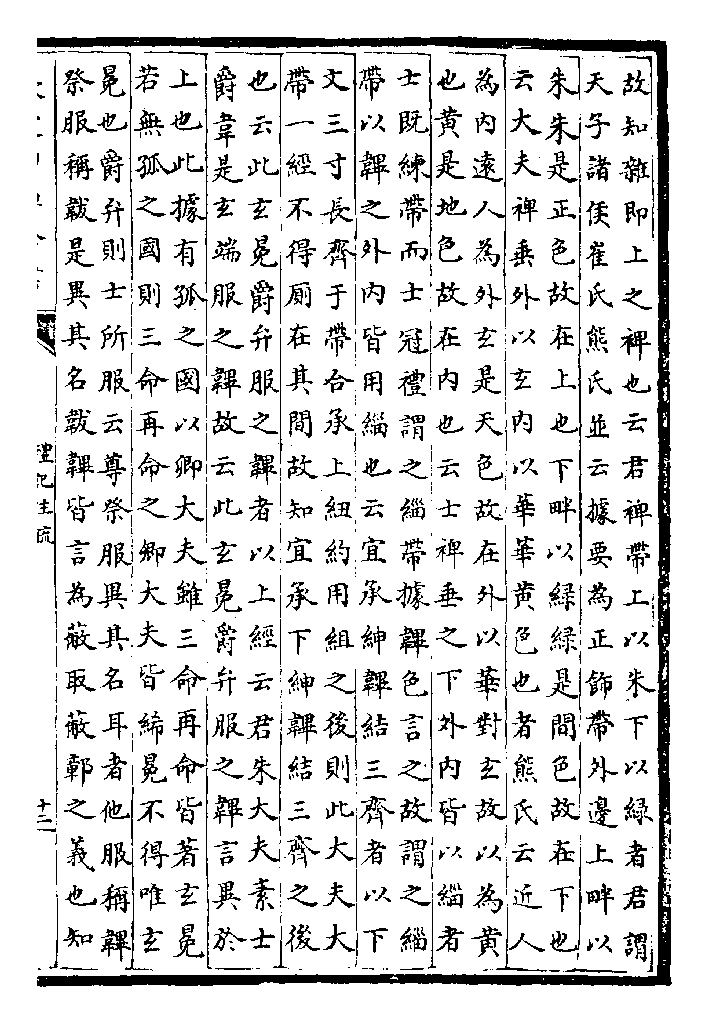 故知雜即上之裨也云君裨帶上以朱下以緑者君謂
天子諸侯崔氏熊氏並云據要為正飾帶外邊上畔以
朱朱是正色故在上也下畔以緑緑是間色故在下也
云大夫裨垂外以玄内以華華黄色也者熊氏云近人
為内遠人為外玄是天色故在外以華對玄故以為黄
也黄是地色故在内也云士裨垂之下外内皆以緇者
士既練帶而士冠禮謂之緇帶據韠色言之故謂之緇
帶以韠之外内皆用緇也云宜承紳韠結三齊者以下
文三寸長齊于帶合承上紐約用組之後則此大夫大
帶一經不得厠在其間故知宜承下紳韠結三齊之後
也云此玄冕爵弁服之韠者以上經云君朱大夫素士
爵韋是玄端服之韠故云此玄冕爵弁服之韠言異於
上也此據有孤之國以卿大夫雖三命再命皆著玄冕
若無孤之國則三命再命之卿大夫皆絺冕不得唯玄
冕也爵弁則士所服云尊祭服異其名耳者他服稱韠
祭服稱韍是異其名韍韠皆言為蔽取蔽鄣之義也知
禮記注疏
十二